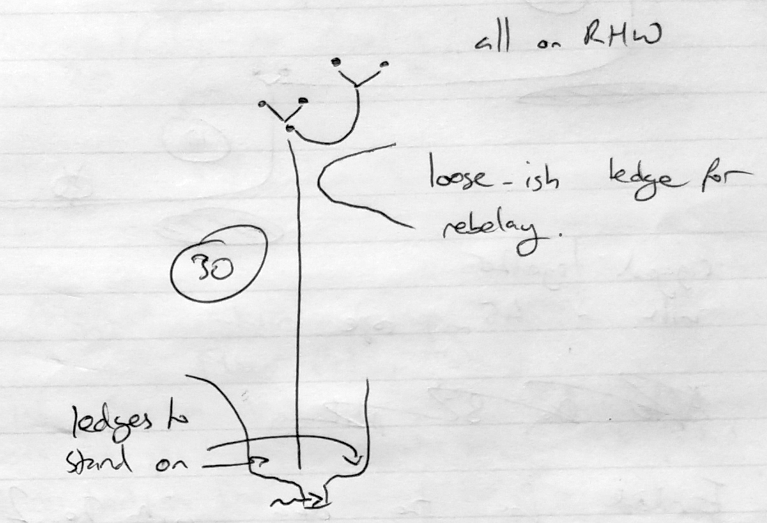 all on RHW
loose-ish ledge for
rebelay.
30
ledges to
stand on